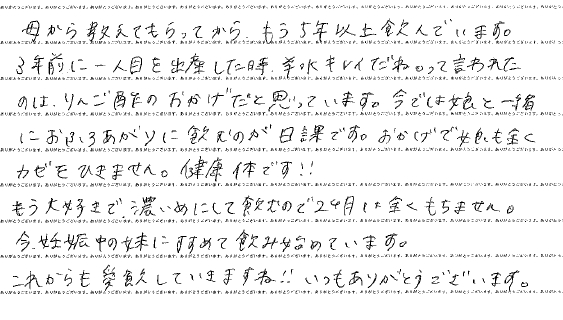 母から教えてもらってから、もう5年以上飲んでいます。
3年前に一人目を出産した時、羊水キレイだね。って言われた
のは、りんご酢のおかげだと思っています。今では娘と一緒
におふろあがりに飲むのが日課です。おかげで娘も全く
カゼをひきません。健康体です!!
もう大好きで、濃いめにして飲むので2ヶ月は全くもちません。
今、妊娠中の妹にすすめて飲み始めています。
これからも愛飲していきますね!! いつもありがとうございます。